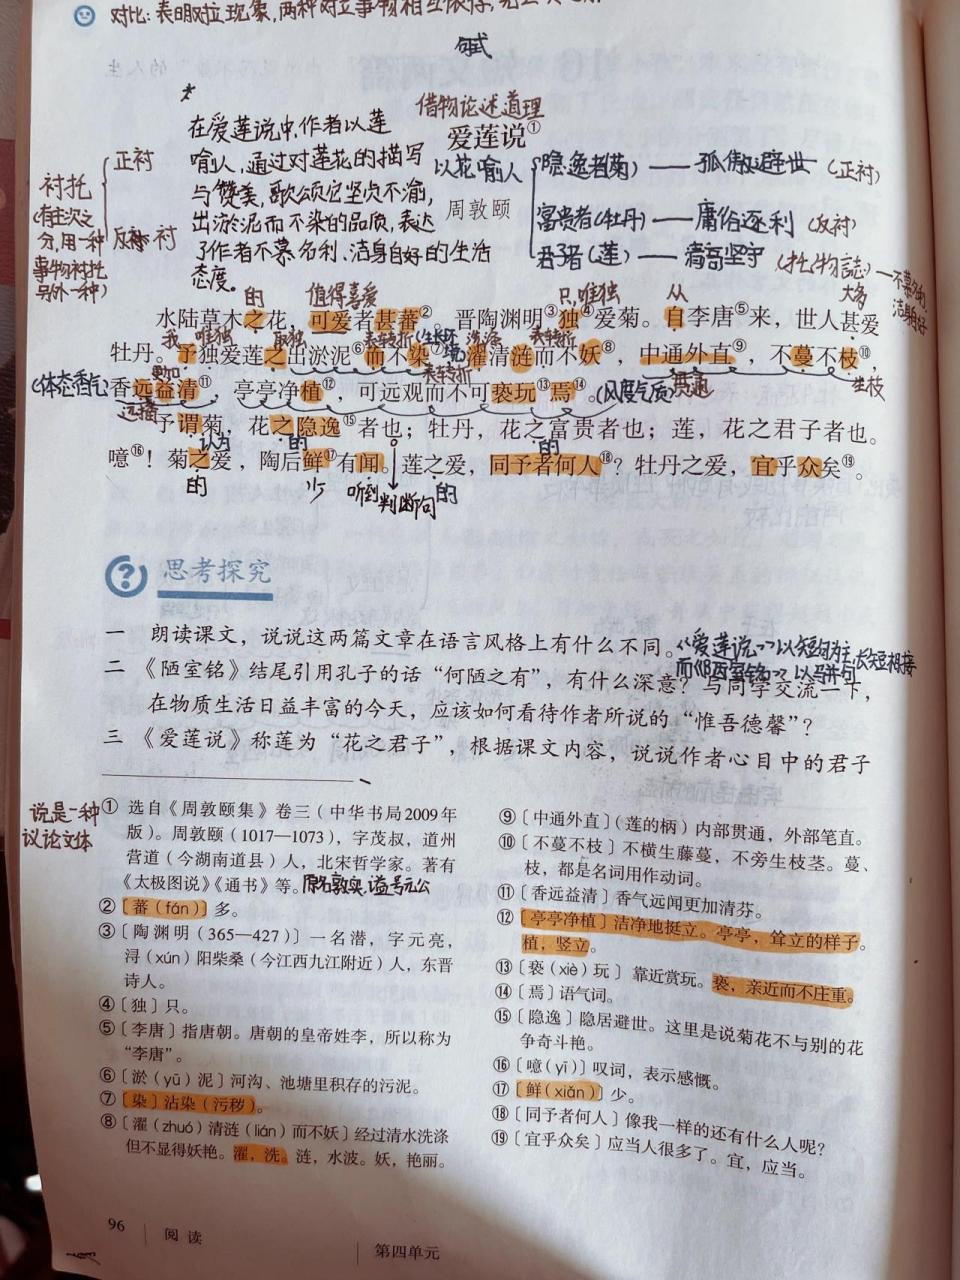 对比：表明对立现象，两种对立事物相互依存，
句式
借物论述道理
爱莲说①
周敦颐
在爱莲说中，作者以莲
喻人，通过对莲花的描写
与赞美，歌颂它坚贞不渝，
出淤泥而不染的品质，表达
了作者不慕名利、洁身自好的生活
态度。
衬托
(有主次之
分，用一种
事物衬托
另外一种)
正衬
反衬
以花喻人
隐逸者(菊)——孤傲避世 (正衬)
富贵者(牡丹)——庸俗逐利 (反衬)
君子者(莲)——清高坚守 (托物言志)—不慕名利，
洁身自好
的 值得喜爱 只，唯独 从 大多
水陆草木之花，可爱者甚蕃②。晋陶渊明③独④爱菊。自李唐⑤来，世人甚爱
我 唯独 取独 表转折 (生长环境) 洗涤 表转折
牡丹。予独爱莲之出淤泥⑥而不染⑦，濯清涟而不妖⑧，中通外直⑨，不蔓不枝⑩，
(体态香气) 更加 表转折 (风度气质) 生枝
香远益清⑪，亭亭净植⑫，可远观而不可亵玩⑬焉⑭。
远播
予谓菊，花之隐逸⑮者也；牡丹，花之富贵者也；莲，花之君子者也。
认为 的 的
噫⑯！菊之爱，陶后鲜⑰有闻。莲之爱，同予者何人⑱？牡丹之爱，宜乎众矣⑲。
的 少 听到 判断句 的
思考探究
一 朗读课文，说说这两篇文章在语言风格上有什么不同。《爱莲说》以短句为主，长短相接
而《陋室铭》以骈句
二 《陋室铭》结尾引用孔子的话“何陋之有”，有什么深意？与同学交流一下，
在物质生活日益丰富的今天，应该如何看待作者所说的“惟吾德馨”？
三 《爱莲说》称莲为“花之君子”，根据课文内容，说说作者心目中的君子
说是一种
议论文体
① 选自《周敦颐集》卷三（中华书局2009年
版）。周敦颐（1017—1073），字茂叔，道州
营道（今湖南道县）人，北宋哲学家。著有
《太极图说》《通书》等。原名敦实，谥号元公
②〔蕃（fán）〕多。
③〔陶渊明（365—427）〕一名潜，字元亮，
浔（xún）阳柴桑（今江西九江附近）人，东晋
诗人。
④〔独〕只。
⑤〔李唐〕指唐朝。唐朝的皇帝姓李，所以称为
“李唐”。
⑥〔淤（yū）泥〕河沟、池塘里积存的污泥。
⑦〔染〕沾染（污秽）。
⑧〔濯（zhuó）清涟（lián）而不妖〕经过清水洗涤
但不显得妖艳。濯，洗。涟，水波。妖，艳丽。
⑨〔中通外直〕（莲的柄）内部贯通，外部笔直。
⑩〔不蔓不枝〕不横生藤蔓，不旁生枝茎。蔓、
枝，都是名词用作动词。
⑪〔香远益清〕香气远闻更加清芬。
⑫〔亭亭净植〕洁净地挺立。亭亭，耸立的样子。
植，竖立。
⑬〔亵（xiè）玩〕靠近赏玩。亵，亲近而不庄重。
⑭〔焉〕语气词。
⑮〔隐逸〕隐居避世。这里是说菊花不与别的花
争奇斗艳。
⑯〔噫（yī）〕叹词，表示感慨。
⑰〔鲜（xiǎn）〕少。
⑱〔同予者何人〕像我一样的还有什么人呢？
⑲〔宜乎众矣〕应当人很多了。宜，应当。
96
阅读
第四单元